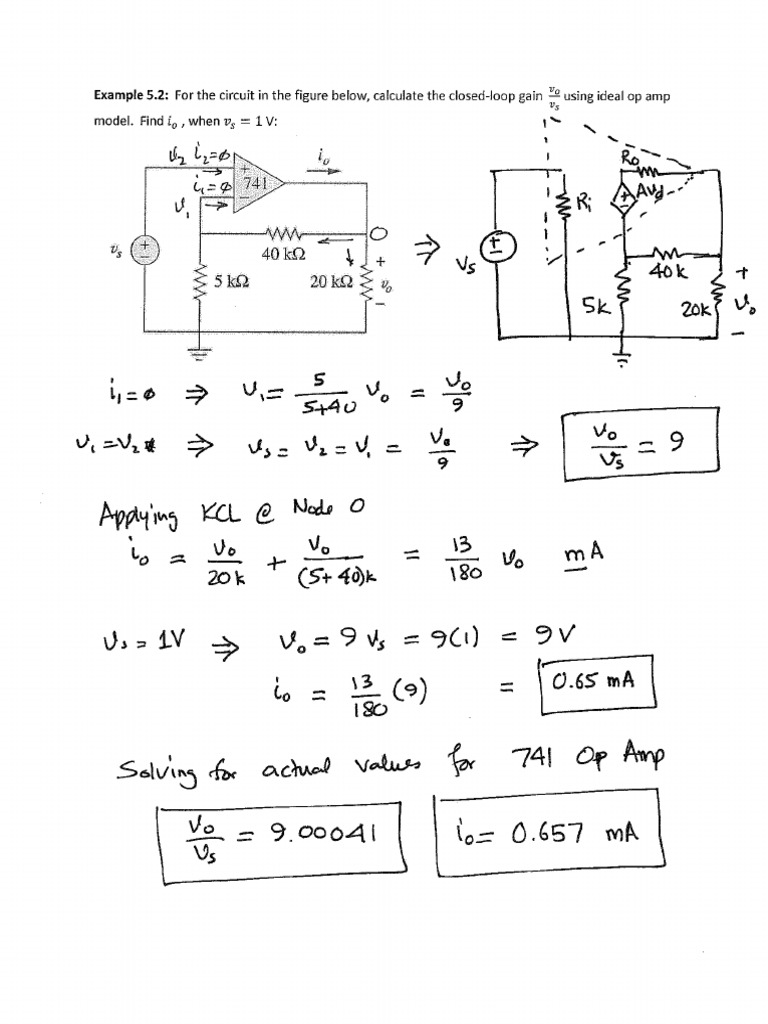 Example 5.2: For the circuit in the figure below, calculate the closed-loop gain v_o/v_s using ideal op amp
model. Find i_o , when v_s = 1 V:
v_2 i_2=φ
i_o
i_1=φ
741
v_1
R_o
AV_d
R_i
v_s
40 kΩ
O
5 kΩ
20 kΩ
v_o
⇒
V_s
40k
5k
20k
v_o
i_1=φ ⇒ v_1= 5/(5+40) v_o = v_o/9
v_1=v_2 ⇒ v_s = v_2 = v_1 = v_o/9 ⇒ v_o/v_s = 9
Applying KCL @ Node O
i_o = v_o/20k + v_o/(5+40)k = 13/180 v_o mA
v_s = 1V ⇒ v_o = 9 v_s = 9(1) = 9V
i_o = 13/180 (9) = 0.65 mA
Solving for actual values for 741 Op Amp
v_o/v_s = 9.00041
i_o= 0.657 mA